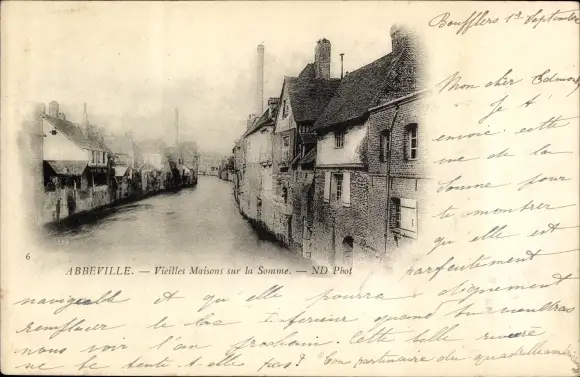 Boufflers 1er Septembre
Mon cher Edmond
Je t'
envoie cette
vue de la
Somme pour
te montrer
qu'elle est
parfaitement
6
ABBEVILLE. — Vieilles Maisons sur la Somme. — ND Phot
navigable et qu'elle pourra dignement
remplacer le lac Inférieur quand tu viendras
nous voir l'an prochain. Cette belle rivière
ne te tente-t-elle pas? Ton partenaire du